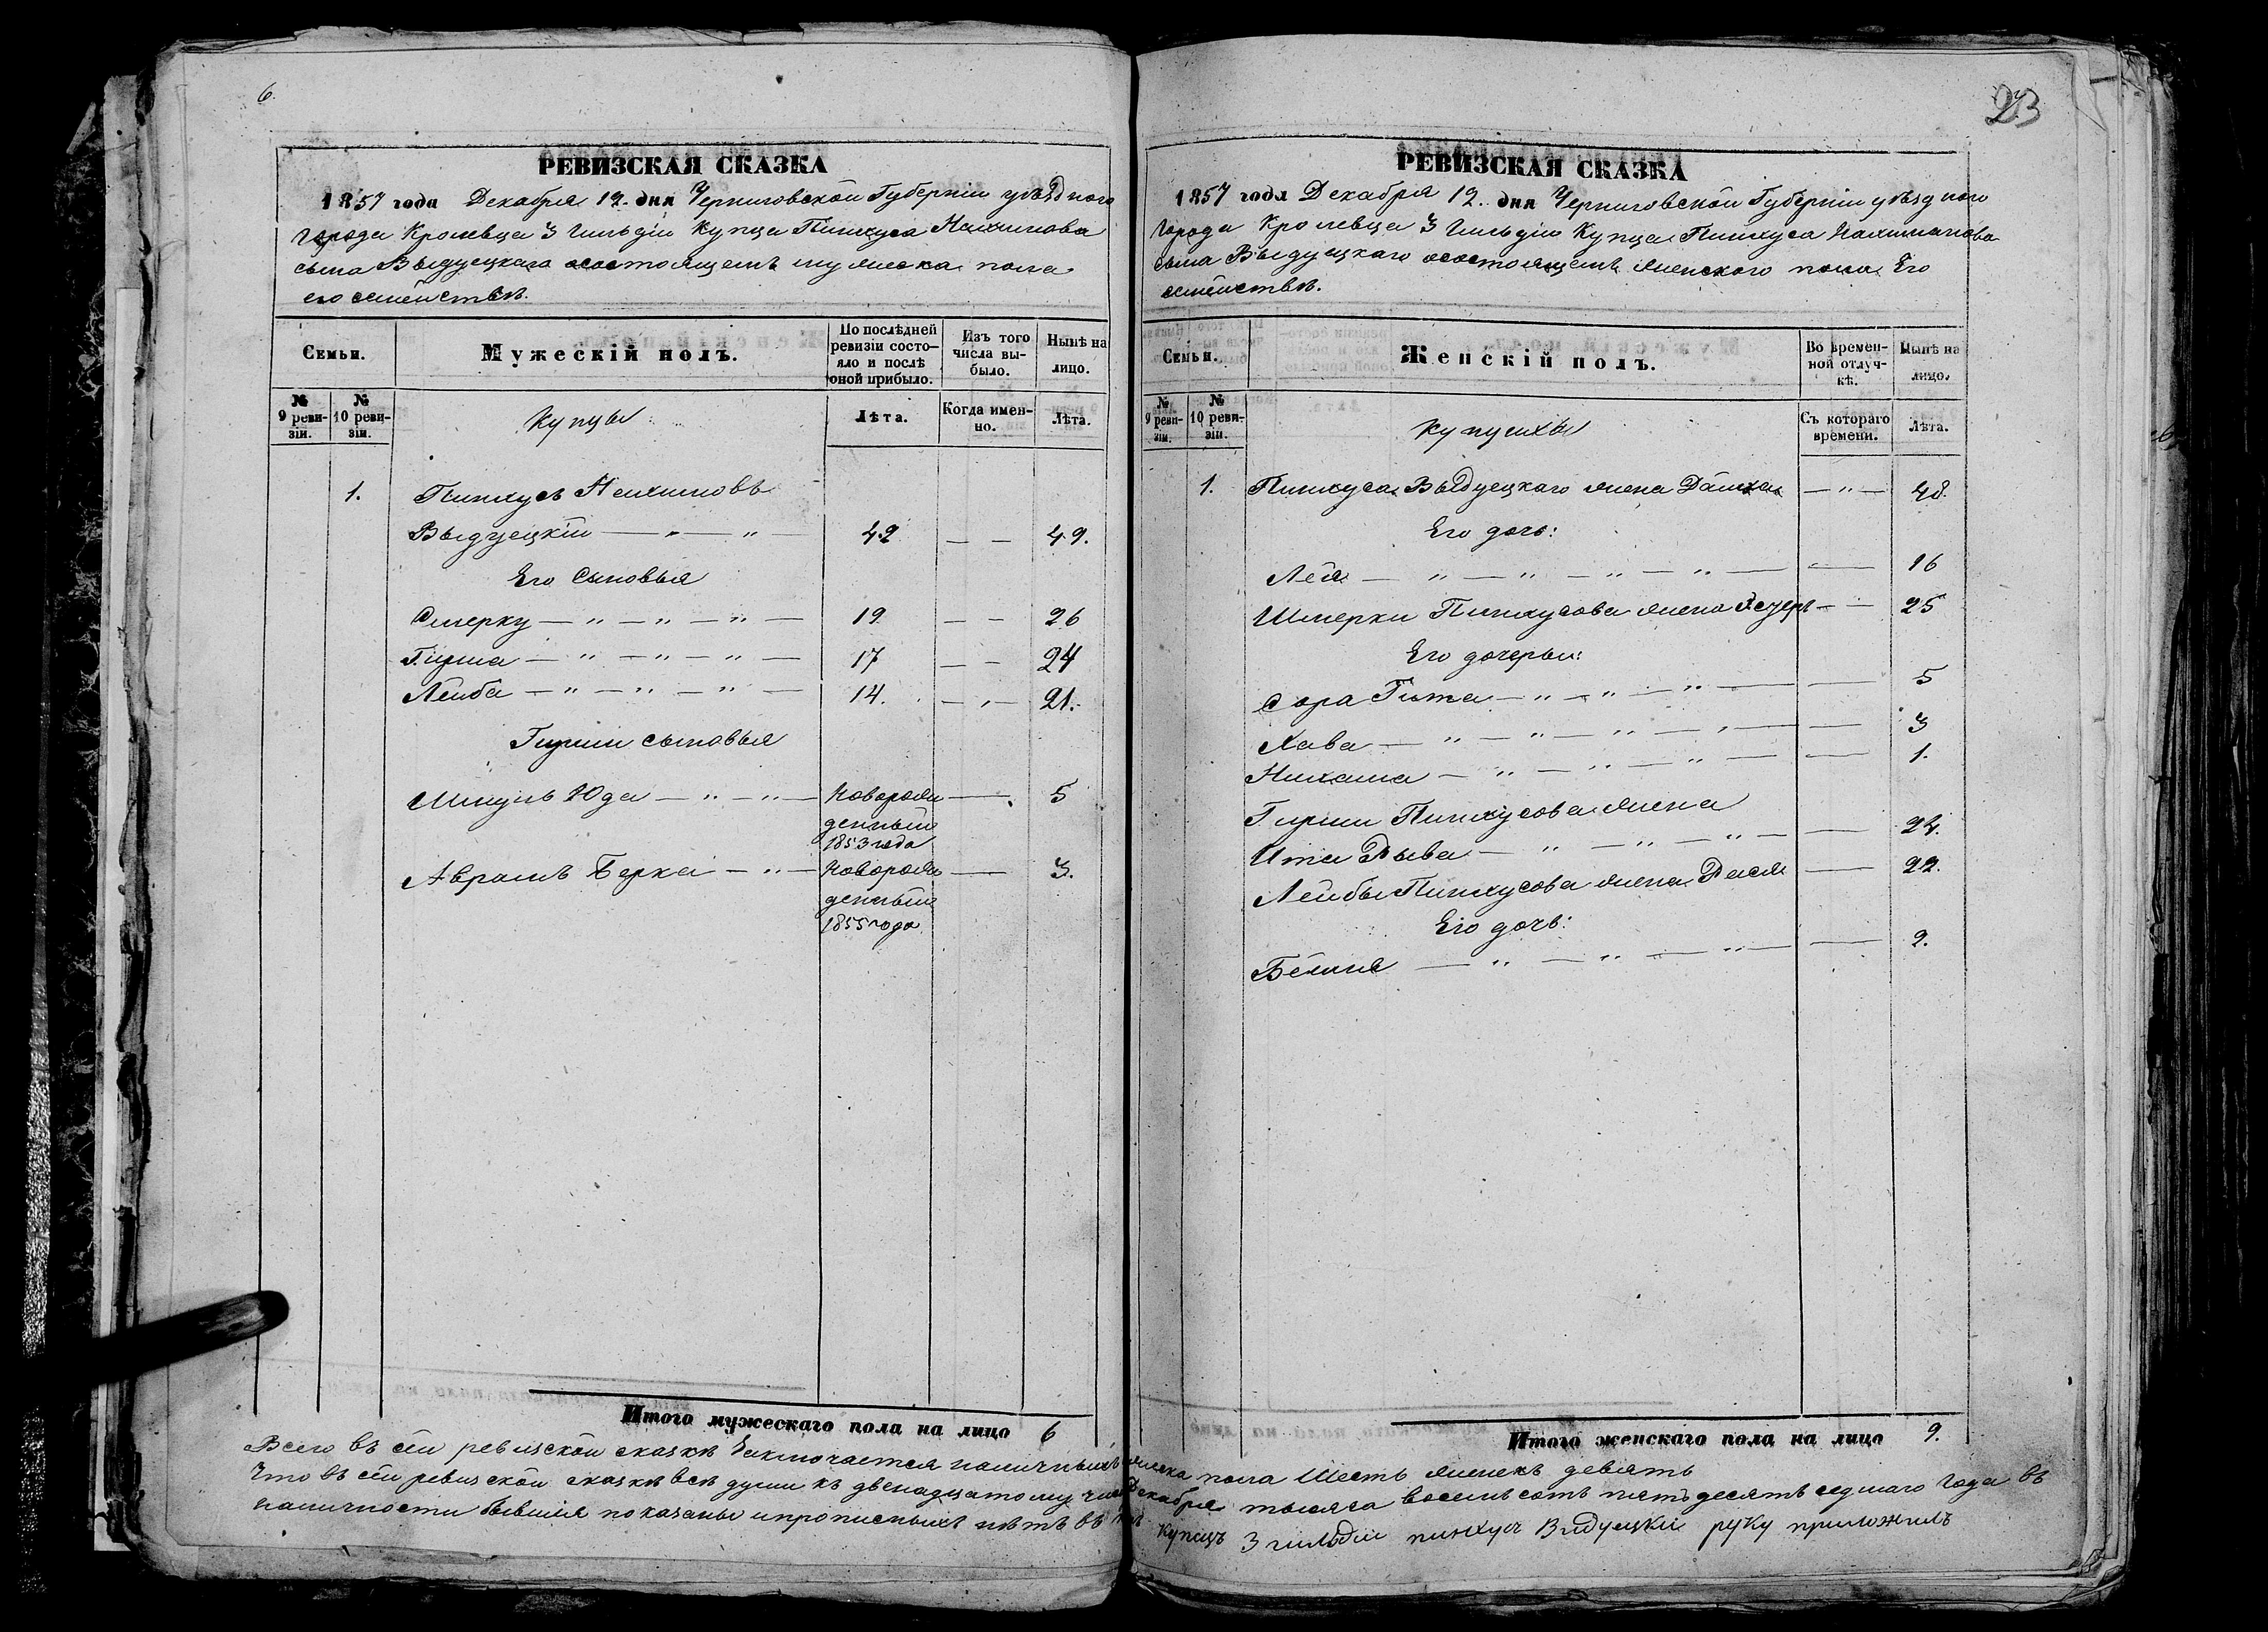 6.
РЕВИЗСКАЯ СКАЗКА
1857 года Декабря 12. дня Черниговской Губерніи уѣзднаго
города Кролевца 3 гильдіи Купца Пинхуса Нахимова
сына Выдуецкаго осостоящемъ мужеска пола
его семействѣ.
Семьи.
Мужескій полъ.
По послѣдней ревизіи состояло и послѣ оной прибыло.
Изъ того числа выбыло.
Нынѣ на лицо.
№ 9 ревизіи.
№ 10 ревизіи.
Купцы
Лѣта.
Когда именно.
Лѣта.
1. Пинхусъ Нахимовъ
Выдуецкій — „ — „ — 42 — — 49.
Его сыновья
Шмерку — „ — „ — „ — 19 — — 26
Гирша — „ — „ — „ — 17 — — 24
Лейба — „ — „ — „ — 14. — „ — 21.
Гирши сыновья
Юда — „ — „ — Новорож — 5
денный
1853 года
Аврамъ Берка — „ — Новорож — 3.
денный
1855 года
Итого мужескаго пола на лицо 6
23
РЕВИЗСКАЯ СКАЗКА
1857 года Декабря 12. дня Черниговской Губерніи уѣзднаго
города Кролевца 3 гильдіи Купца Пинхуса Нахимова
сына Выдуецкаго осостоящемъ женскаго пола Его
семействѣ.
Семьи.
Женскій полъ.
Во временной отлучкѣ.
Нынѣ на лицо.
№ 9 ревизіи.
№ 10 ревизіи.
Купчихи
Съ котораго времени.
Лѣта.
1. Пинхуса Выдуецкаго жена — „ — 48.
Его дочь:
Лея — „ — „ — „ — „ — — 16
Шмерки Пинхусова жена — — 25
Его дочерьи:
Сора Гита — „ — „ — „ — — 5
Хава — „ — „ — „ — „ — — 3
Нихама — „ — „ — „ — — 1.
Гирши Пинхусова жена
Ита Рыва — „ — „ — „ — — 24.
Лейбы Пинхусова жена Рася — 22.
Его дочь:
— „ — „ — „ — — 2.
Итого женскаго пола на лицо 9.
Всего въ сей ревизской сказкѣ заключается наличныхъ мужеска пола шесть женска девять
Что въ сей ревизской сказкѣ всѣ души къ двенадцатому числу Декабря тысяча восемьсотъ пятьдесятъ седмаго года въ
наличности бывшія показаны и прописныхъ нѣтъ въ томъ Купецъ 3 гильдіи пинхус Видуецкій руку приложилъ